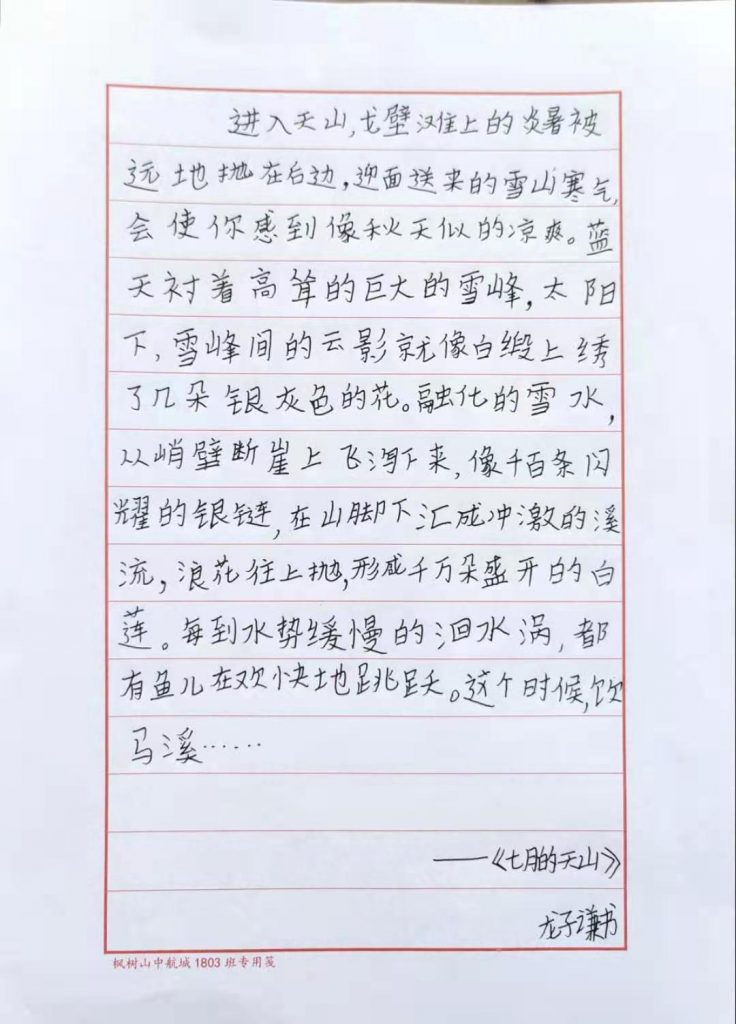 进入天山,戈壁滩上的炎暑被
远地抛在后边,迎面送来的雪山寒气,
会使你感到像秋天似的凉爽。蓝
天衬着高耸的巨大的雪峰,太阳
下,雪峰间的云影就像白缎上绣
了几朵银灰色的花。融化的雪水,
从峭壁断崖上飞泻下来,像千百条闪
耀的银链,在山脚下汇成冲激的溪
流,浪花往上抛,形成千万朵盛开的白
莲。每到水势缓慢的洄水涡,都
有鱼儿在欢快地跳跃。这个时候,饮
马溪……
——《七月的天山》
龙子谦书
枫树山中航城1803班专用笺